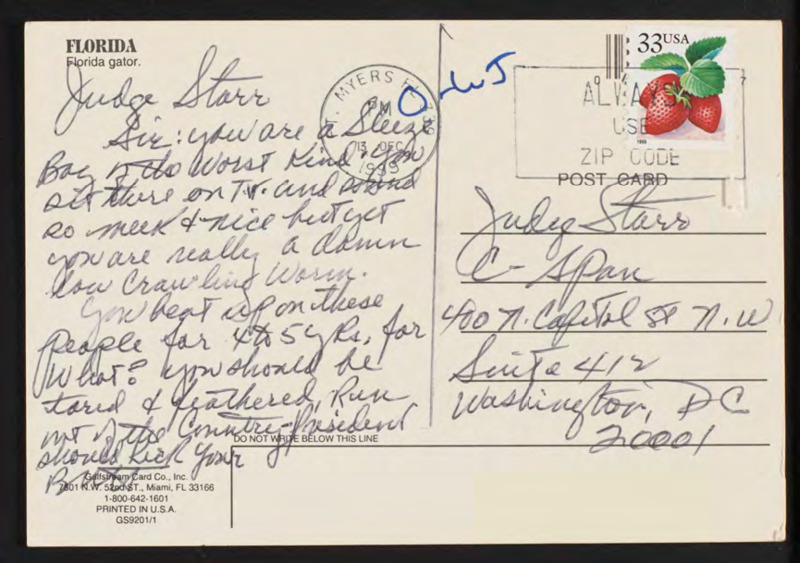 FLORIDA
Florida gator.
Judge Starr
Sir: you are a Sleeze
Bag of the Worst Kind. You
sit there on T.V. and
so meek & nice but yet
you are really a damn
low Crawling Worm.
You beat up on these
people for 4 to 5 yRs, for
What? you should be
tared & feathered, Run
out of the Country-President
should Kick your
Gulfstream Card Co., Inc.
7801 N.W. 52nd ST., Miami, FL 33166
1-800-642-1601
PRINTED IN U.S.A.
GS9201/1
DO NOT WRITE BELOW THIS LINE
MYERS
PM
13 DEC
1999
33USA
ALWAYS
USE
ZIP CODE
POST CARD
Judge Starr
C-Span
400 N. Capitol St N.W
Suite 412
Washington, DC
20001